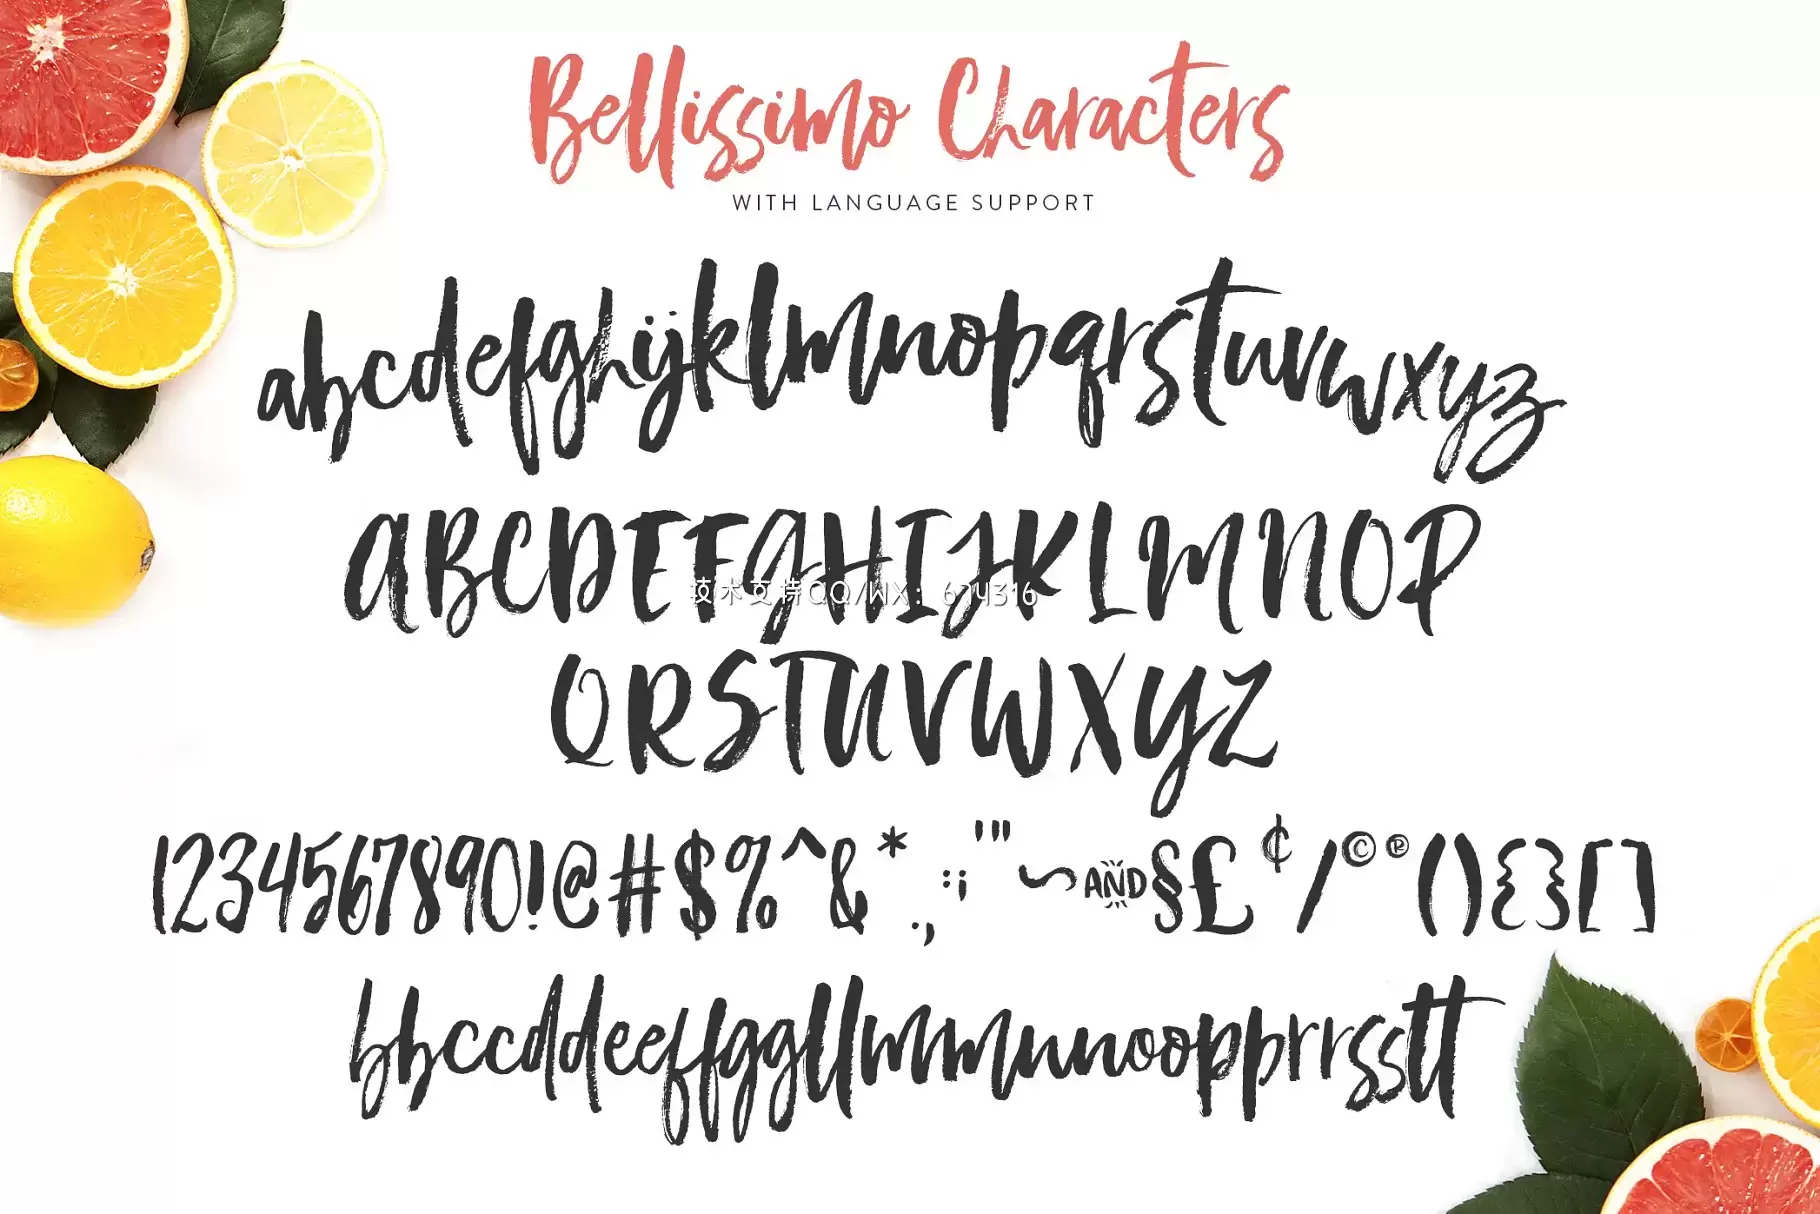 Bellissimo Characters
WITH LANGUAGE SUPPORT
abcdefghijklmnopqrstuvwxyz
ABCDEFGHIJKLMNOP
技术支持QQ/WX：674316
QRSTUVWXYZ
1234567890!@#$%^&*.,:;'"~AÑD§£¢/©®(){}[]
bbccddeeffggllmmnnoopprrsstt